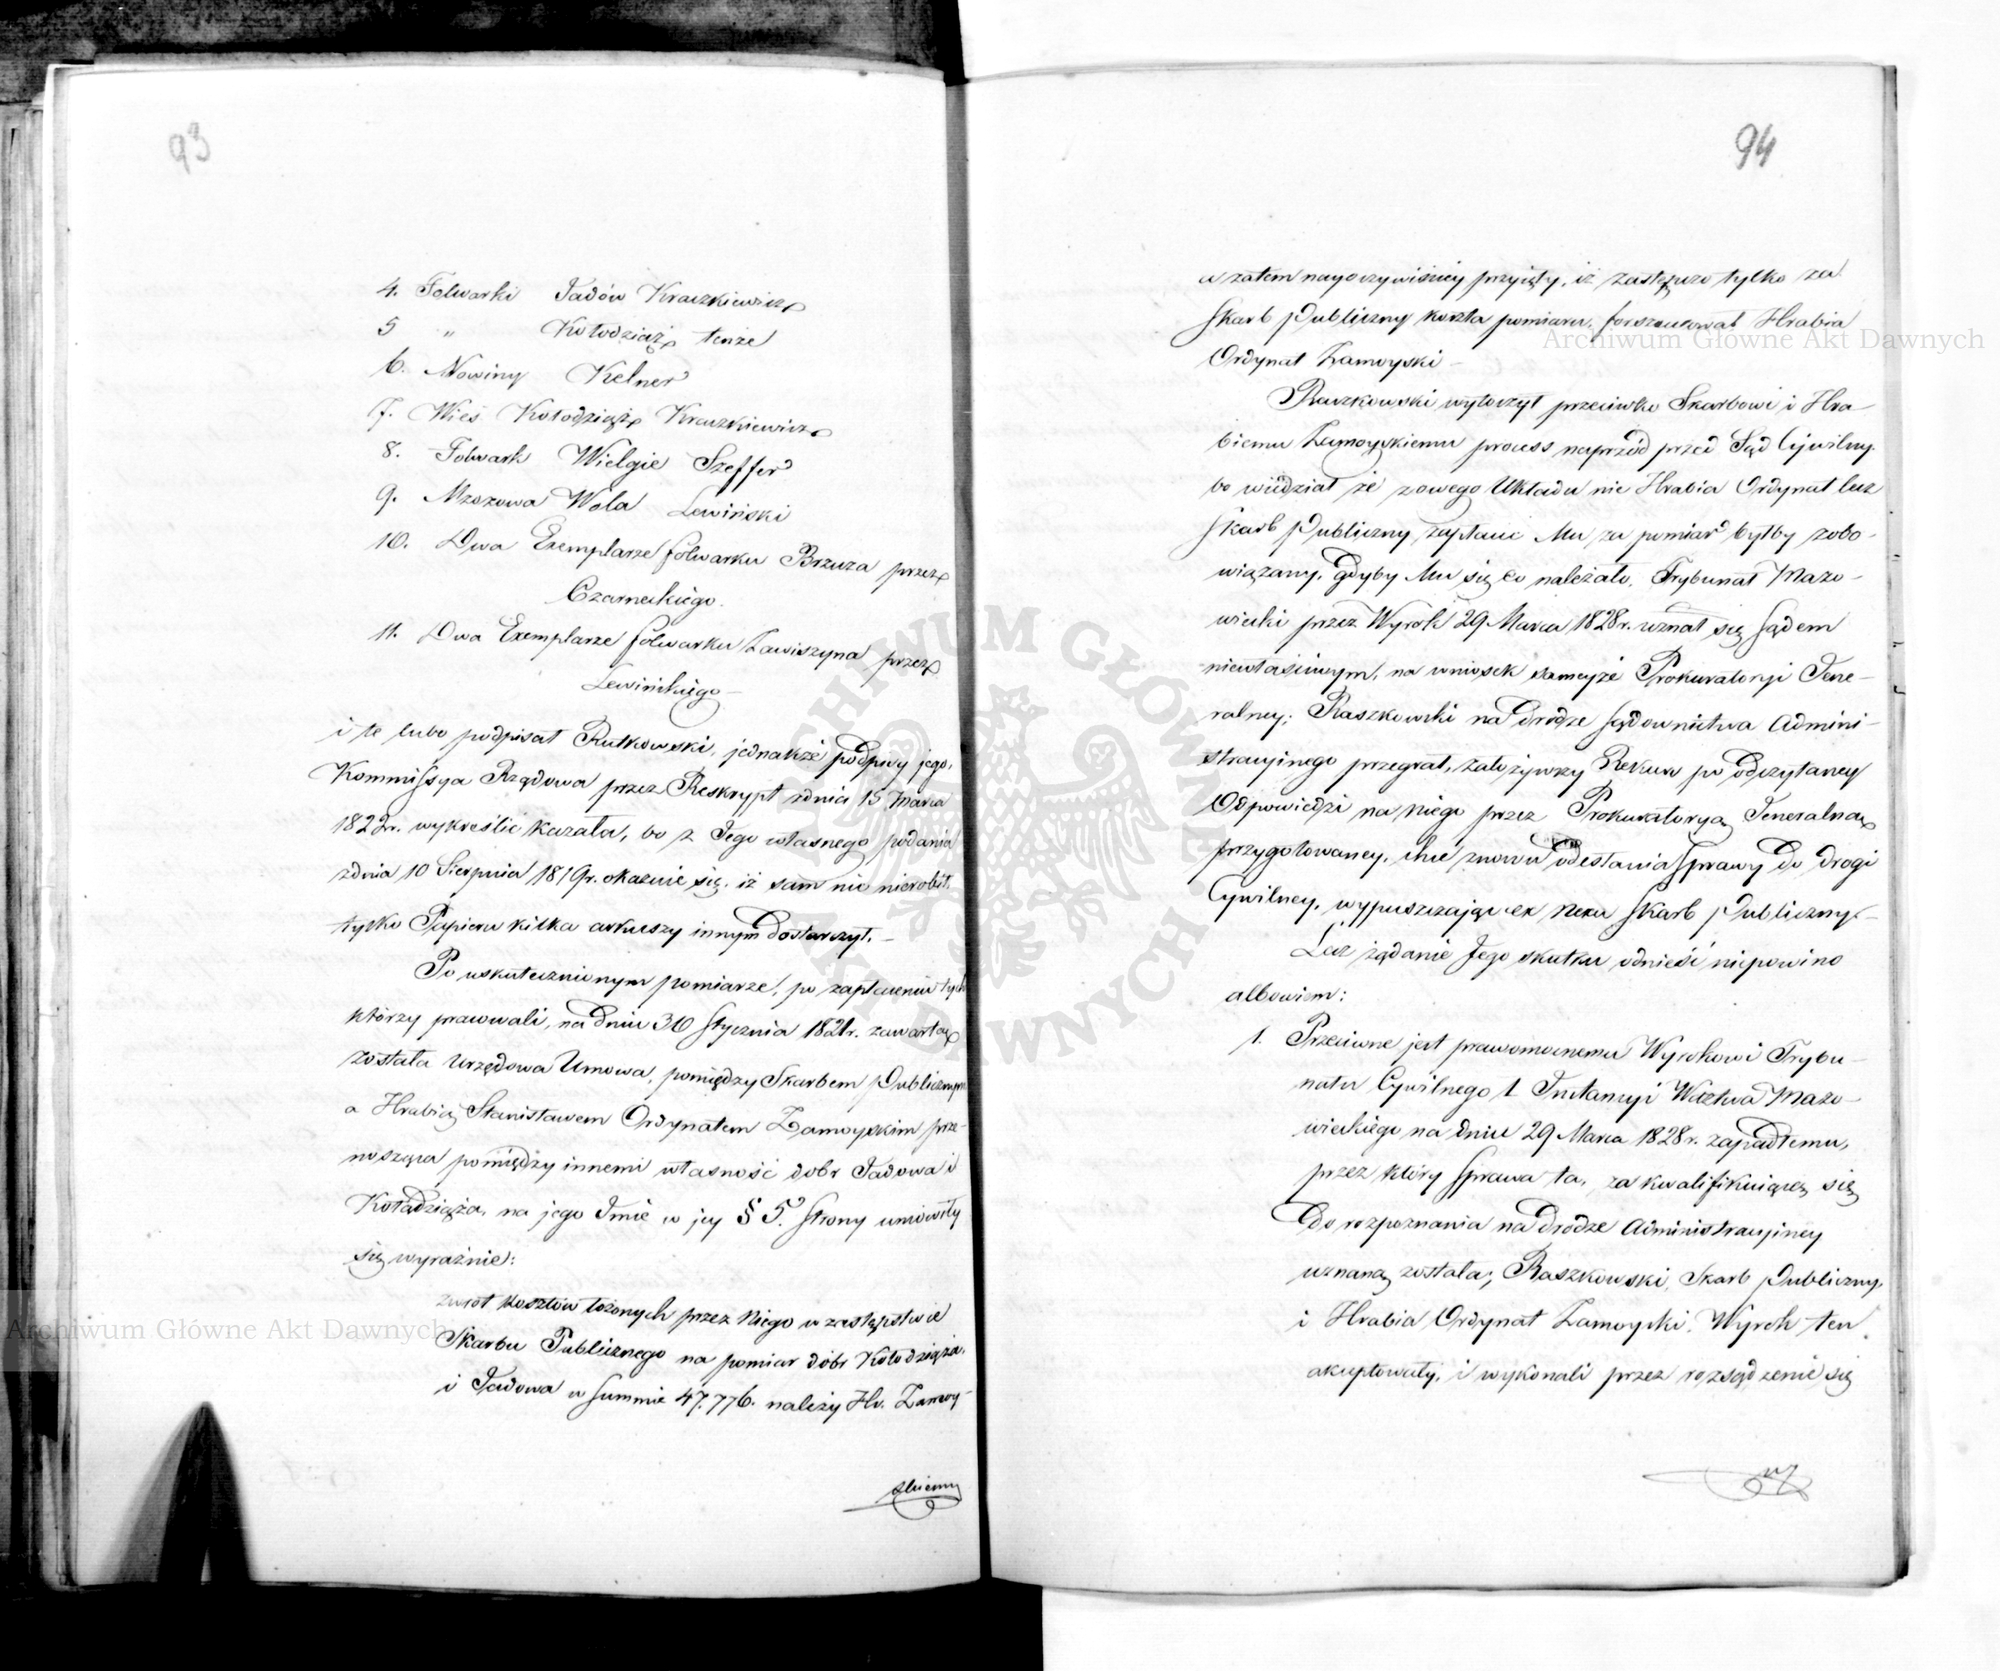 93
4. Folwarki Jadów Kraczkiewicz
5 " Kołodziąż tenże
6. Nowiny Kelner
7. Wieś Kołodziąż Kraczkiewicz
8. Folwark Wielgie Szeffer
9. Mzozowa Wola Lewiński
10. Dwa Exemplarze folwarku Brzuza przez
Czarneckiego.
11. Dwa Exemplarze folwarku Zawiszyna przez
Lewińskiego –
i te lubo podpisał Rutkowski, jednakże podpisy jego,
Kommissya Rządowa przez Reskrypt zdnia 15 Marca
1822r. wykreślić kazała, bo z Jego własnego podania
zdnia 10 Sierpnia 1819r. okazuie się, iż sam nic nierobił,
tylko Papieru kilka arkuszy innym dostarczył. –
Po uskutecznionym pomiarze, po zapłaceniu tych
którzy pracowali, na dniu 30 Stycznia 1821r. zawarta
została Urzędowa Umowa, pomiędzy Skarbem Publicznym
a Hrabią Stanisławem Ordynatem Zamoyskim prze-
nosząca pomiędzy innemi własność dobr Jadowa i
Kołodziąża, na jego Imie, w jey § 5. Strony umówiły
się wyraźnie:
zwrot kosztów łożonych przez Niego w zastępstwie
Skarbu Publicznego na pomiar dóbr Kołodziąża,
i Jadowa w summie 47.776. należy Hr. Zamoy-
skiemu
94
a zatem nayoczywiściey przyięty, iż zastępczo tylko za
Skarb Publiczny koszta pomiaru, forszusował Hrabia
Ordynat Zamoyski –
Raczkowski wytoczył przeciwko Skarbowi i Hra-
biemu Zamoyskiemu process naprzód przed Sąd Cywilny.
bo wiedział że z owego Układu nie Hrabia Ordynat lecz
Skarb Publiczny, zapłacić Mu za pomiar byłby zobo-
wiązany, gdyby Mu się co należało. Trybunał Mazo-
wiecki przez Wyrok 29 Marca 1828r. uznał się Sądem
niewłaściwym, na wniosek samejże Prokuratoryi Jene-
ralney; Raszkowski na drodze Sądownictwa Admini-
stracyinego przegrał, założywszy Rekurs po odczytaney
Odpowiedzi na niego przez Prokuratoryą Jeneralną
przygotowaney, chce znowu odesłania Sprawy do drogi
Cywilney, wypuszczając ex nexu Skarb Publiczny. –
Lecz żądanie Jego skutku odnieść niepowinno
albowiem:
1. Przeciwne jest prawomocnemu Wyrokowi Trybu-
nału Cywilnego 1 Instancyi Wdztwa Mazo-
wieckiego na dniu 29 Marca 1828r. zapadłemu,
przez który Sprawa ta, za kwalifikuiącą się
do rozpoznania na drodze Administracyiney
uznaną została; Raszkowski, Skarb Publiczny,
i Hrabia Ordynat Zamoyski, Wyrok ten
akceptowały, i wykonali przez rozsądzenie się
Archiwum Główne Akt Dawnych
Archiwum Główne Akt Dawnych
ARCHIWUM GŁÓWNE AKT DAWNYCH